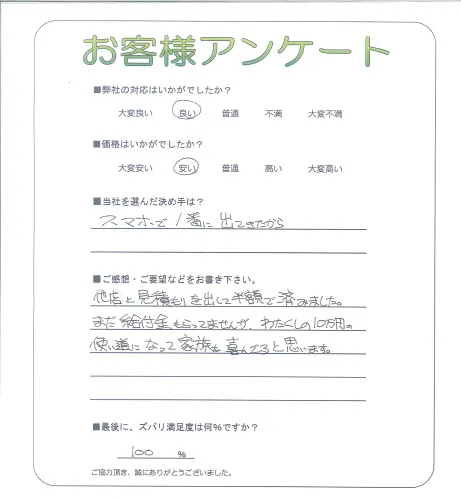 お客様アンケート
■弊社の対応はいかがでしたか？
大変良い 良い 普通 不満 大変不満
■価格はいかがでしたか？
大変安い 安い 普通 高い 大変高い
■当社を選んだ決め手は？
スマホで1番に出てきたから
■ご感想・ご要望などをお書き下さい。
他店と見積もりを出して半額で済みました。
まだ給付金もらってませんが、わたくしの10万円の
使い道になって家族も喜んでると思います。
■最後に、ズバリ満足度は何％ですか？
100 ％
ご協力頂き、誠にありがとうございました。